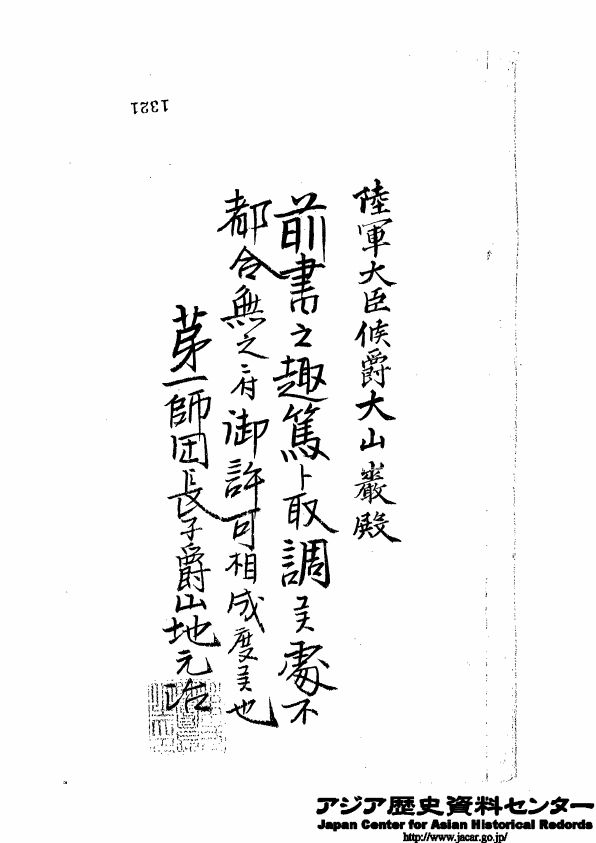 陸軍大臣侯爵大山巌殿
前書之趣篤ト取調候處不
都合無之ニ付御許可相成度候也
第一師団長子爵山地元治
1321
アジア歴史資料センター
Japan Center for Asian Historical Records
http://www.jacar.go.jp/